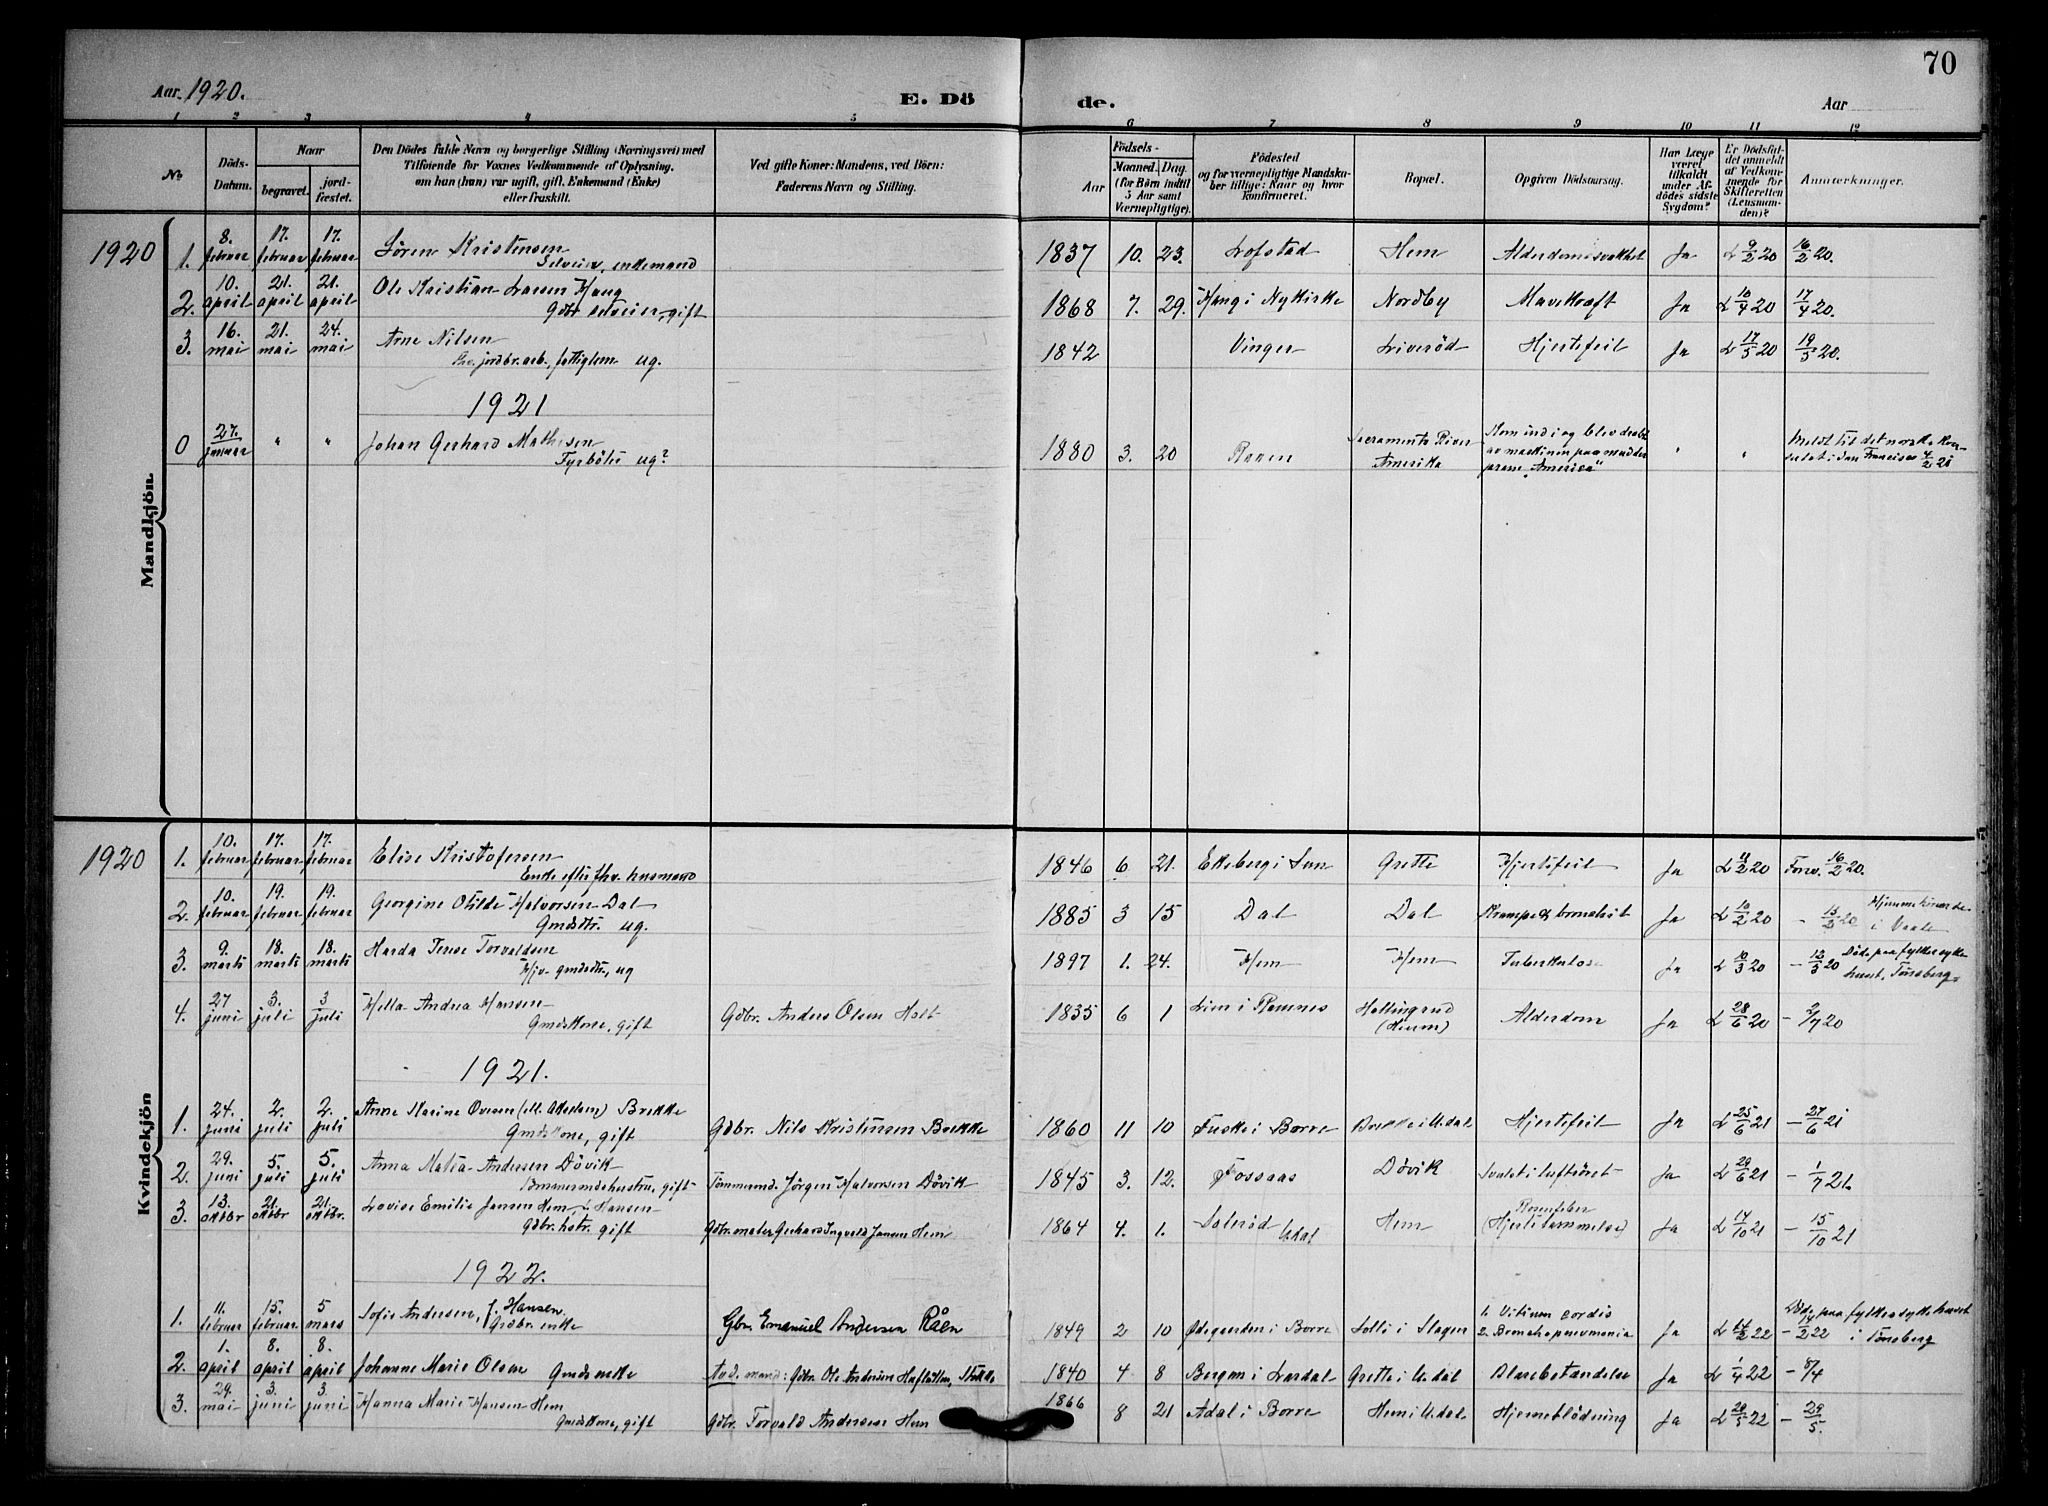 70
Aar 1920.
E. Dö
de.
Aar
1 2 3 4 5 6 7 8 9 10 11 12
No
Döds-Datum.
Naar
begravet.
jord-fæstet.
Den Dödes fulde Navn og borgerlige Stilling (Næringsvei) med
Tilföiende for Voxnes Vedkommende af Oplysning,
om han (hun) var ugift, gift, Enkemand (Enke)
eller fraskilt.
Ved gifte Koner: Mandens, ved Börn:
Faderens Navn og Stilling.
Födsels-
Aar
Maaned. Dag.
(for Börn indtil
5 Aar samt
Værnepligtige).
Födested
og for værnepligtige Mandska-
ber tillige: Naar og hvor
konfirmeret.
Bopæl.
Opgiven Dödsaarsag.
Har Læge
været
tilkaldt
under Af-
dödes sidste
Sygdom?
Er Dödsfal-
det anmeldt
af Vedkom-
mende for
Skifteretten
(Lensman-
den)?
Anmærkninger.
Mandkjön.
1920 1. 8. februar 17. februar 17. februar Sören Kristensen
Selveier, enkemand 1837 10. 23. Lofstad Hem Alderdomssvakhet Ja L 9/2 20 16/2 20.
2. 10. april 21. april 21. april Ole Kristian Larsen Haug
Gdbr. selveier, gift 1868 7. 29. Haug i Nykirke Nordby Mavekræft Ja L 10/4 20 17/4 20.
3. 16. mai 21. mai 24. mai Arne Nilsen
jordbr. arb., fattiglem ug. 1842 Vinger Liverød Hjertefeil Ja L 17/5 20 19/5 20.
1921
0 27. januar " " Johan Gerhard Mathisen
Fyrböter ug? 1880 3. 20 Raaen Sacramento River
Amerika Kom ind i og blev dræbt
av maskinen paa mudder
pram "America" " " Meldt til det norske kon-
sulat i San Francisco 4/2 21
Kvindekjön
1920 1. 10. februar 17. februar 17. februar Elise Kristofersen
Enke efter fhv. husmand 1846 6 21. Ekeberg i Grette Hjertefeil Ja L 11/2 20 Forv. 16/2 20.
2. 10. februar 19. februar 19. februar Georgine Otilde Halvorsen Dal
Gmdsdtr. ug. 1885 3 15 Dal Dal Krampe & bronchit Ja L 10/2 20 - 15/2 20 Hjemmehörende
i Vaale
3. 9. marts 18. marts 18. marts Harda Terese Torvaldsen
Hjv. gmdsdtr, ug 1897 1. 24. Hem Hem Tuberkulose Ja L 10/3 20 - 12/3 20 Död paa fylkessyke
huset, Tönsberg
4. 27 juni 3. juli 3 juli Hella Andrea Hansen
Gmdskone, gift Gdbr. Anders Olsen Holt 1835 6 1 Lien i Ramnes Hallingrud
(Heum) Alderdom Ja L 28/6 20 - 2/7 20
1921.
1. 24. juni 2. juli 2. juli Anne Karine Ovesen (ell. Akselsen) Brekke
Gmdskone, gift Gdbr. Nils Kristensen Brekke 1860 11 10 Fuske i Borre Brekke i Undal Hjertefeil Ja L 25/6 21 - 27/6 21
2. 29. juni 5. juli 5. juli Anna Matea Andersen Dövik
Tömmermandshustru, gift Tömmermd. Jörgen Halvorsen Dövik 1845 3. 12. Fossaas Dövik Svulst i luftröret Ja L 29/6 21 - 1/7 21.
3. 13. oktbr 21. oktbr 21. oktbr. Lovise Emilie Jansen Hem, f. Hansen
Gdbr. hstr. gift Gdbr. Gerhard Ingvald Jansen Hem 1864 4. 1. Dalsröd Undal Hem Rosenfeber
(Hjertelammelse) Ja L 14/10 21 - 15/10 21
1922.
1. 11. februar 15. februar 5 mars Sofie Andersen, f. Hansen
Gdbr. enke Gbr. Emanuel Andersen Råen 1849 2 10 Ödegaarden i Borre Solli i Slagen 1. Vitium cordis
2. Bronchopneumonia Ja L 14/2 22 - 14/2 22 Död paa fylkessykehuset
i Tönsberg
2. 1. april 8. april 8. april Johanne Marie Olsen Gmds enke Avd. mand: Gdbr. Ole Andersen 1840 4 8 Bergan i Lardal Grette i Undal Blærebetændelse Ja L 1/4 22 - 8/4
3. 29. mai 3. juni 3. juni Hanna Marie Hansen Hem
Gmdskone, gift Gdbr. Torvald Andersen Hem 1866 8 21 Adal i Borre Hem i Undal Hjerneblödning Ja L 29/5 22 - 29/5.